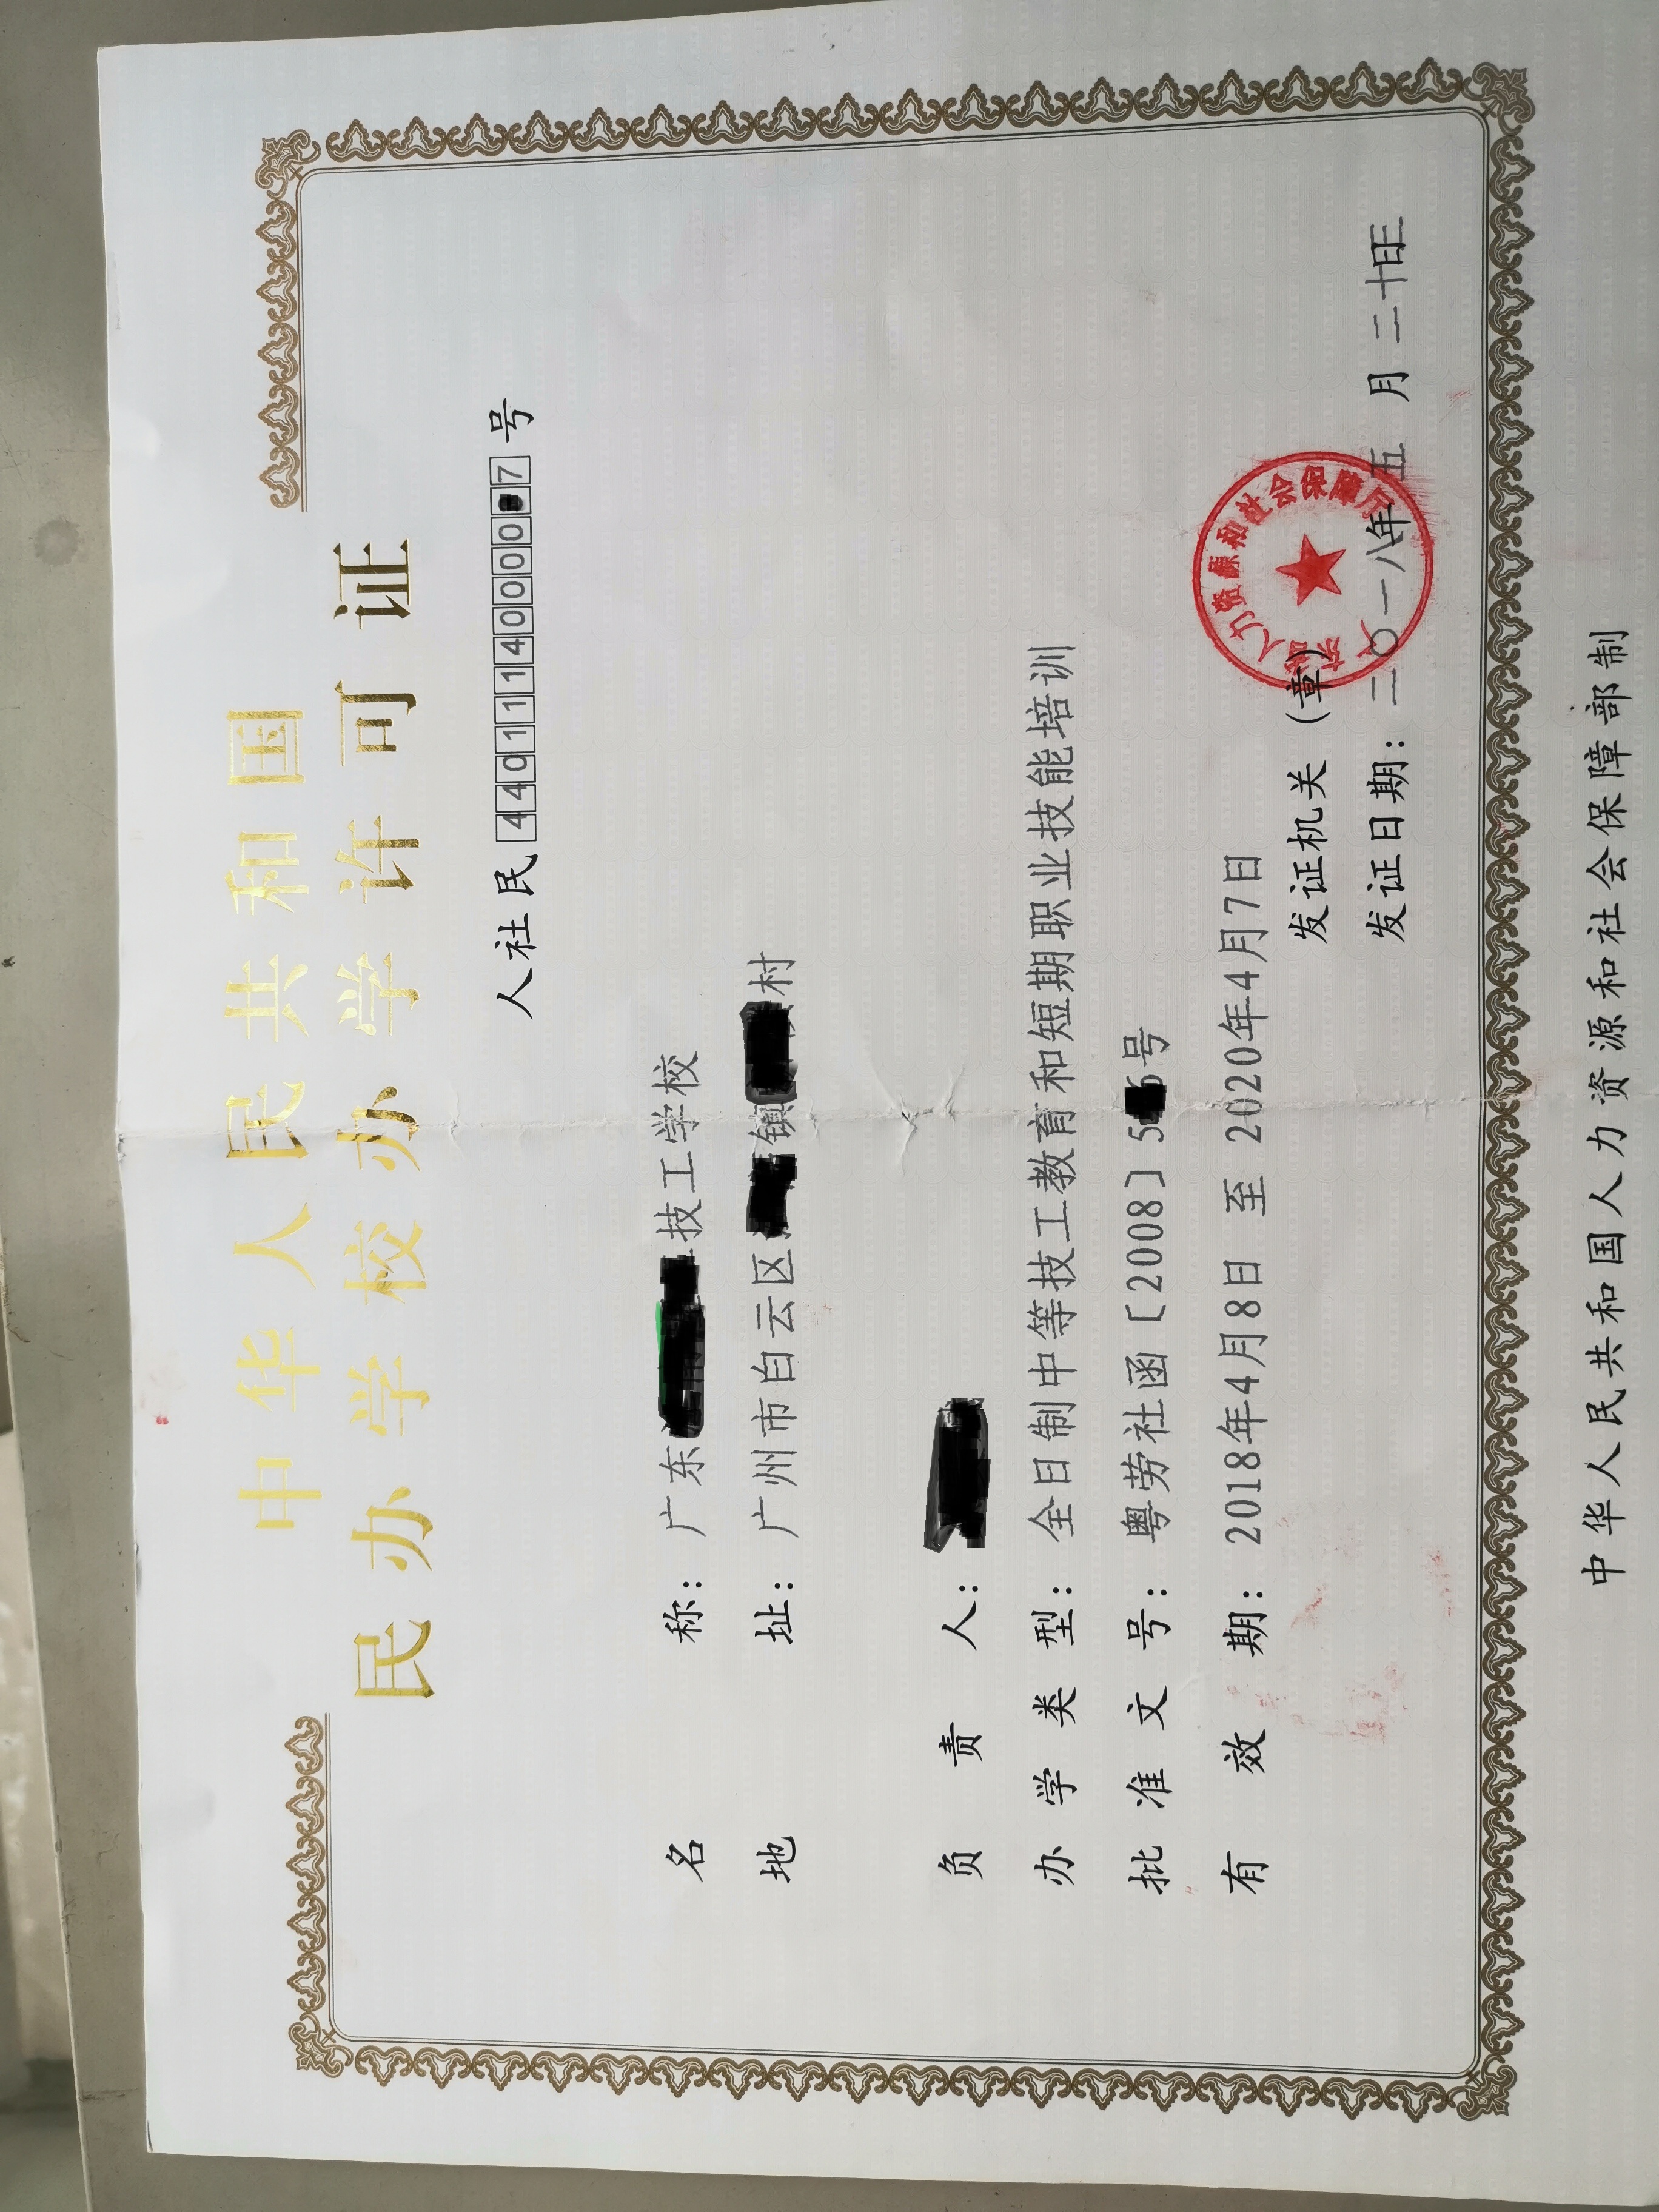 中华人民共和国
民办学校办学许可证
人社民4401114000007号
名称：广东技工学校
地址：广州市白云区镇村
负责人：
办学类型：全日制中等技工教育和短期职业技能培训
批准文号：粤劳社函〔2008〕56号
有效期：2018年4月8日 至 2020年4月7日
发证机关（章）
人力资源和社会保障厅
发证日期：二〇一八年五月二十日
中华人民共和国人力资源和社会保障部制